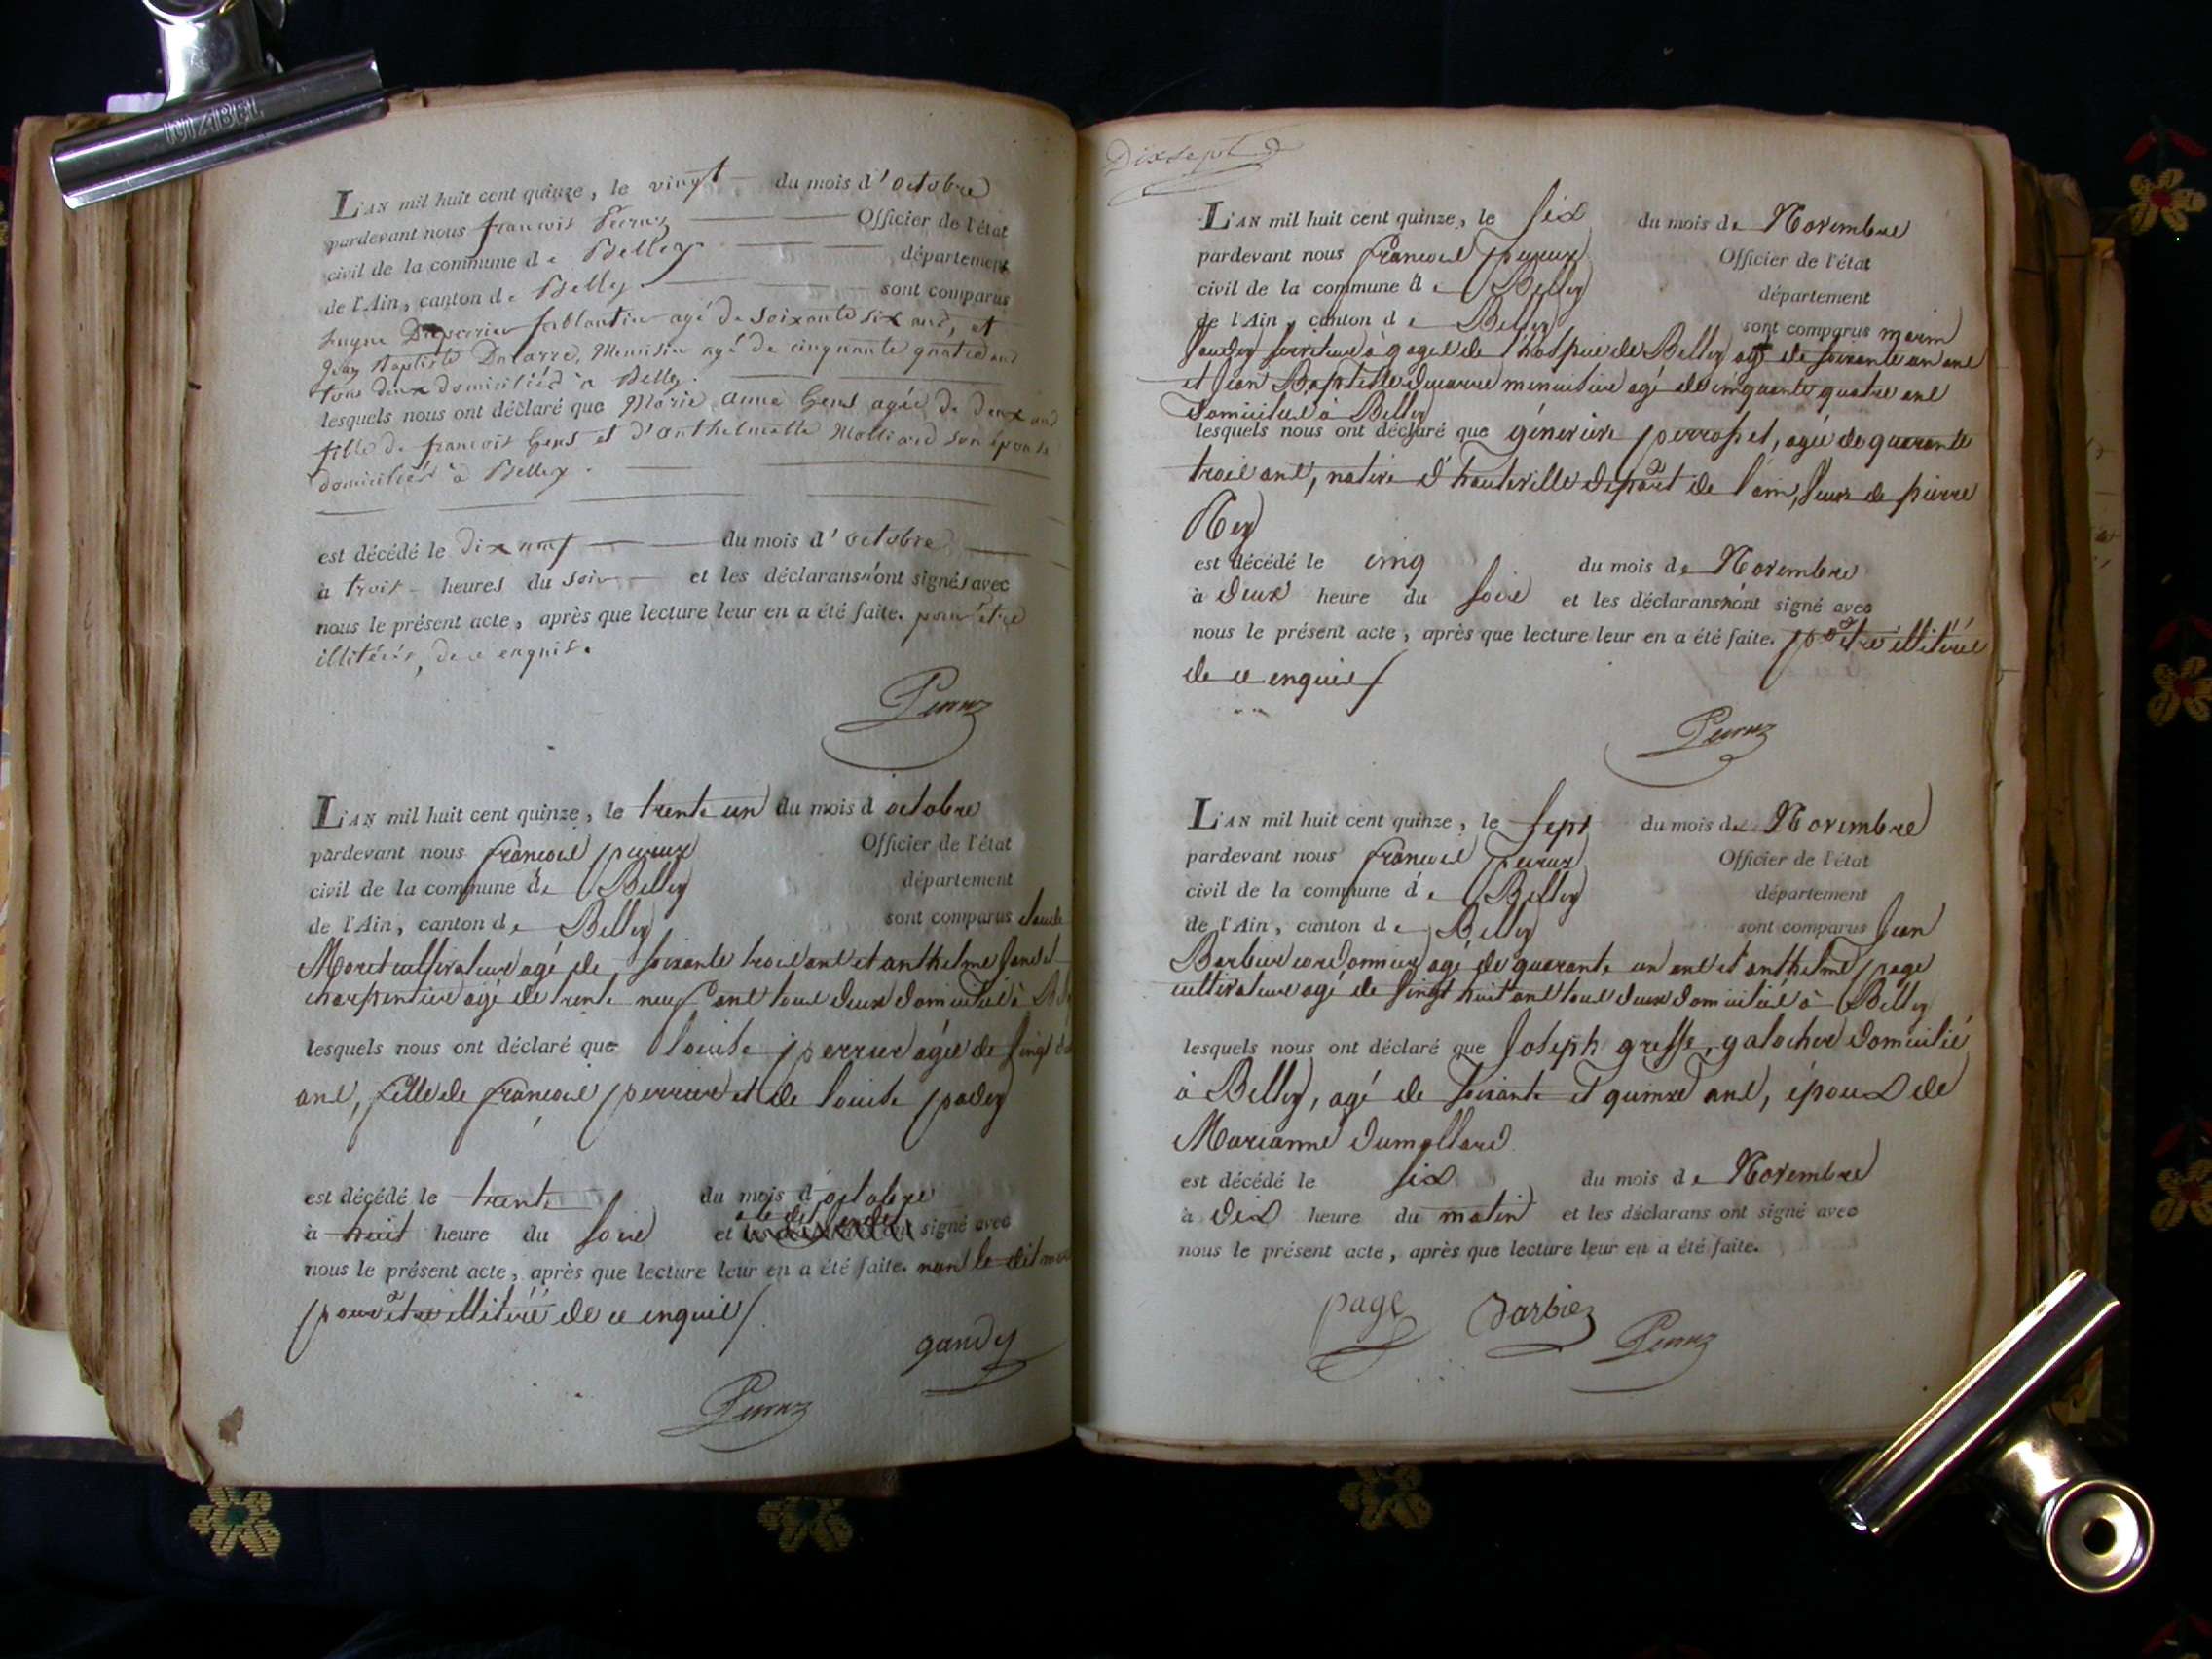 NIABEL
L'AN mil huit cent quinze, le vingt du mois d'octobre
pardevant nous françois Officier de l'état
civil de la commune de Belley département
de l'Ain, canton de Belley sont comparus
agé de soixante six ans, et
Jean Baptiste Ducarre, Menuisier agé de cinquante quatre ans
tous deux domiciliés à Belley.
lesquels nous ont déclaré que Marie anne Gens agée de deux ans
fille de françois Gens et d'anthelmette Molliard son épouse
domiciliés à Belley.
est décédé le dix neuf du mois d'octobre
à trois heures du soir et les déclarans n'ont signés avec
nous le présent acte, après que lecture leur en a été faite. pour être
illitérés, de ce enquis.
L'AN mil huit cent quinze, le trente un du mois d octobre
pardevant nous françois Officier de l'état
civil de la commune de Belley département
de l'Ain, canton de Belley sont comparus claude
Moret cultivateur agé de soixante trois ans et anthelme
charpentier agé de trente neuf ans tous deux domiciliés à
lesquels nous ont déclaré que louise perrier agée de
ans, fille de françois perrier et de louise
est décédé le trente du mois d'octobre
à huit heure du soir et signé avec
nous le présent acte, après que lecture leur en a été faite. non le dit
pour être illitéré de ce enquis
gandy
Dixsept
L'AN mil huit cent quinze, le six du mois de Novembre
pardevant nous françois Officier de l'état
civil de la commune de Belley département
de l'Ain, canton de Belley sont comparus marin
serviteur à gages de l'hospice de Belley agé de soixante un ans
et Jean Baptiste ducarre menuisier agé de cinquante quatre ans
domiciliés à Belley
lesquels nous ont déclaré que génevieve perrosset, agée de quarante
trois ans, native d'hauteville départ de l'ain, veuve de pierre
Ney
est décédé le cinq du mois de Novembre
à deux heure du soir et les déclarans n'ont signé avec
nous le présent acte, après que lecture leur en a été faite. pr être illitérés
de ce enquis
L'AN mil huit cent quinze, le sept du mois de Novembre
pardevant nous françois Officier de l'état
civil de la commune de Belley département
de l'Ain, canton de Belley sont comparus Jean
Barbier cordonnier agé de quarante un ans et anthelme page
cultivateur agé de vingt huit ans tous deux domiciliés à Belley
lesquels nous ont déclaré que Joseph greffe, galocher domicilié
à Belley, agé de soixante et quinze ans, époux de
Marianne dumollard
est décédé le six du mois de Novembre
à dix heure du matin et les déclarans ont signé avec
nous le présent acte, après que lecture leur en a été faite.
page Barbier